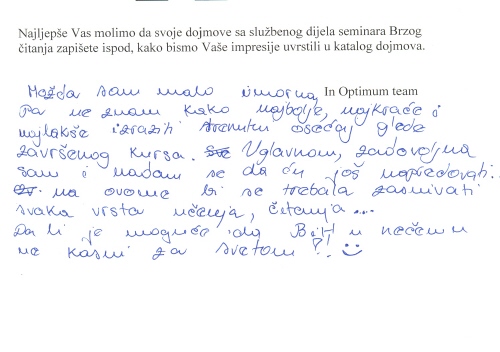 Najljepše Vas molimo da svoje dojmove sa službenog dijela seminara Brzog
čitanja zapišete ispod, kako bismo Vaše impresije uvrstili u katalog dojmova.
Možda sam malo umorna, In Optimum team
Pa ne znam kako najbolje, najkraće i
najlakše izraziti trenutni osećaj glede
završenog kursa. Uglavnom, zadovoljna
sam i nadam se da ću još napredovati.
na ovome bi se trebala zasnivati
svaka vrsta učenja, čitanja...
Da li je moguće da BiH u nečemu
ne kasni za svetom?! :)